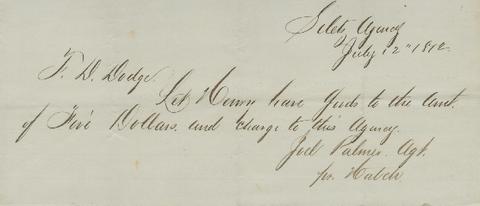 Siletz Agency
July 12" 1872
F. D. Dodge.
Let Henry have Guds to the Amt.
of Five Dollars. and charge to this Agency.
Joel Palmer. Agt.
pr. Hatch